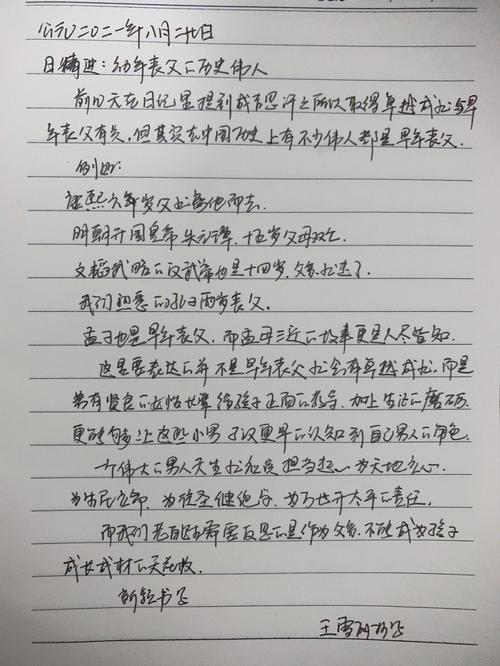 公元二〇二一年八月二十七日
日精进：幼年丧父的历史伟人
前几天在日记里提到成吉思汗之所以取得卓越成就与早
年丧父有关，但其实在中国历史上有不少伟人都是早年丧父．
例如：
康熙六年岁父就离他而去．
明朝开国皇帝朱元璋．十五岁父母双亡
文韬武略的汉武帝也是十四岁．父亲就逝了．
我们熟悉的孔子两岁丧父．
孟子也是早年丧父．而孟母三迁的故事更是人尽皆知．
这里要表达的并不是早年丧父就会有卓越成就．而是
若有贤良的女性长辈给孩子正面的教导．加上生活的磨砺．
更能够让这些小男子汉更早的认知到自己男人的角色．
一个伟大的男人天生就应该担当起．为天地立心．
为生民立命．为往圣继绝学．为万世开太平的责任．
而我们老百姓需要反思的是作为父亲．不能成为孩子
成长成材的天花板．
王雪